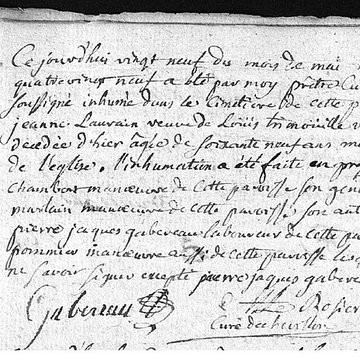 Ce jourd'hui vingt neuf du mois de mai
quatre vingt neuf a été par moy prêtre Cu
soussigné inhumé dans le cimetière de cette p
jeanne Lauvain veuve de Loüis
décedée d'hier agée de soixante neuf ans mu
de l'eglise. l'inhumation a été faite en pre
chambert manœuvre de cette paroisse son gen
marlain manœuvre de cette paroisse son aut
pierre jaques gabereau laboureur de cette pa
pommier manœuvre aussi de cette paroisse lesq
ne savoir signer excepté pierre jaques gabere
Gabereau
Rosier
Curé de